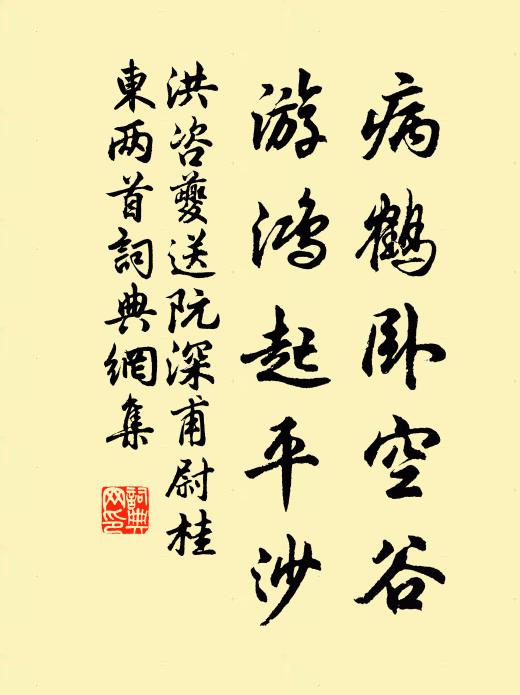 病鹤卧空谷
游鸿起平沙
洪咨夔送阮深甫尉桂
東两首詞典網集
詞典网印